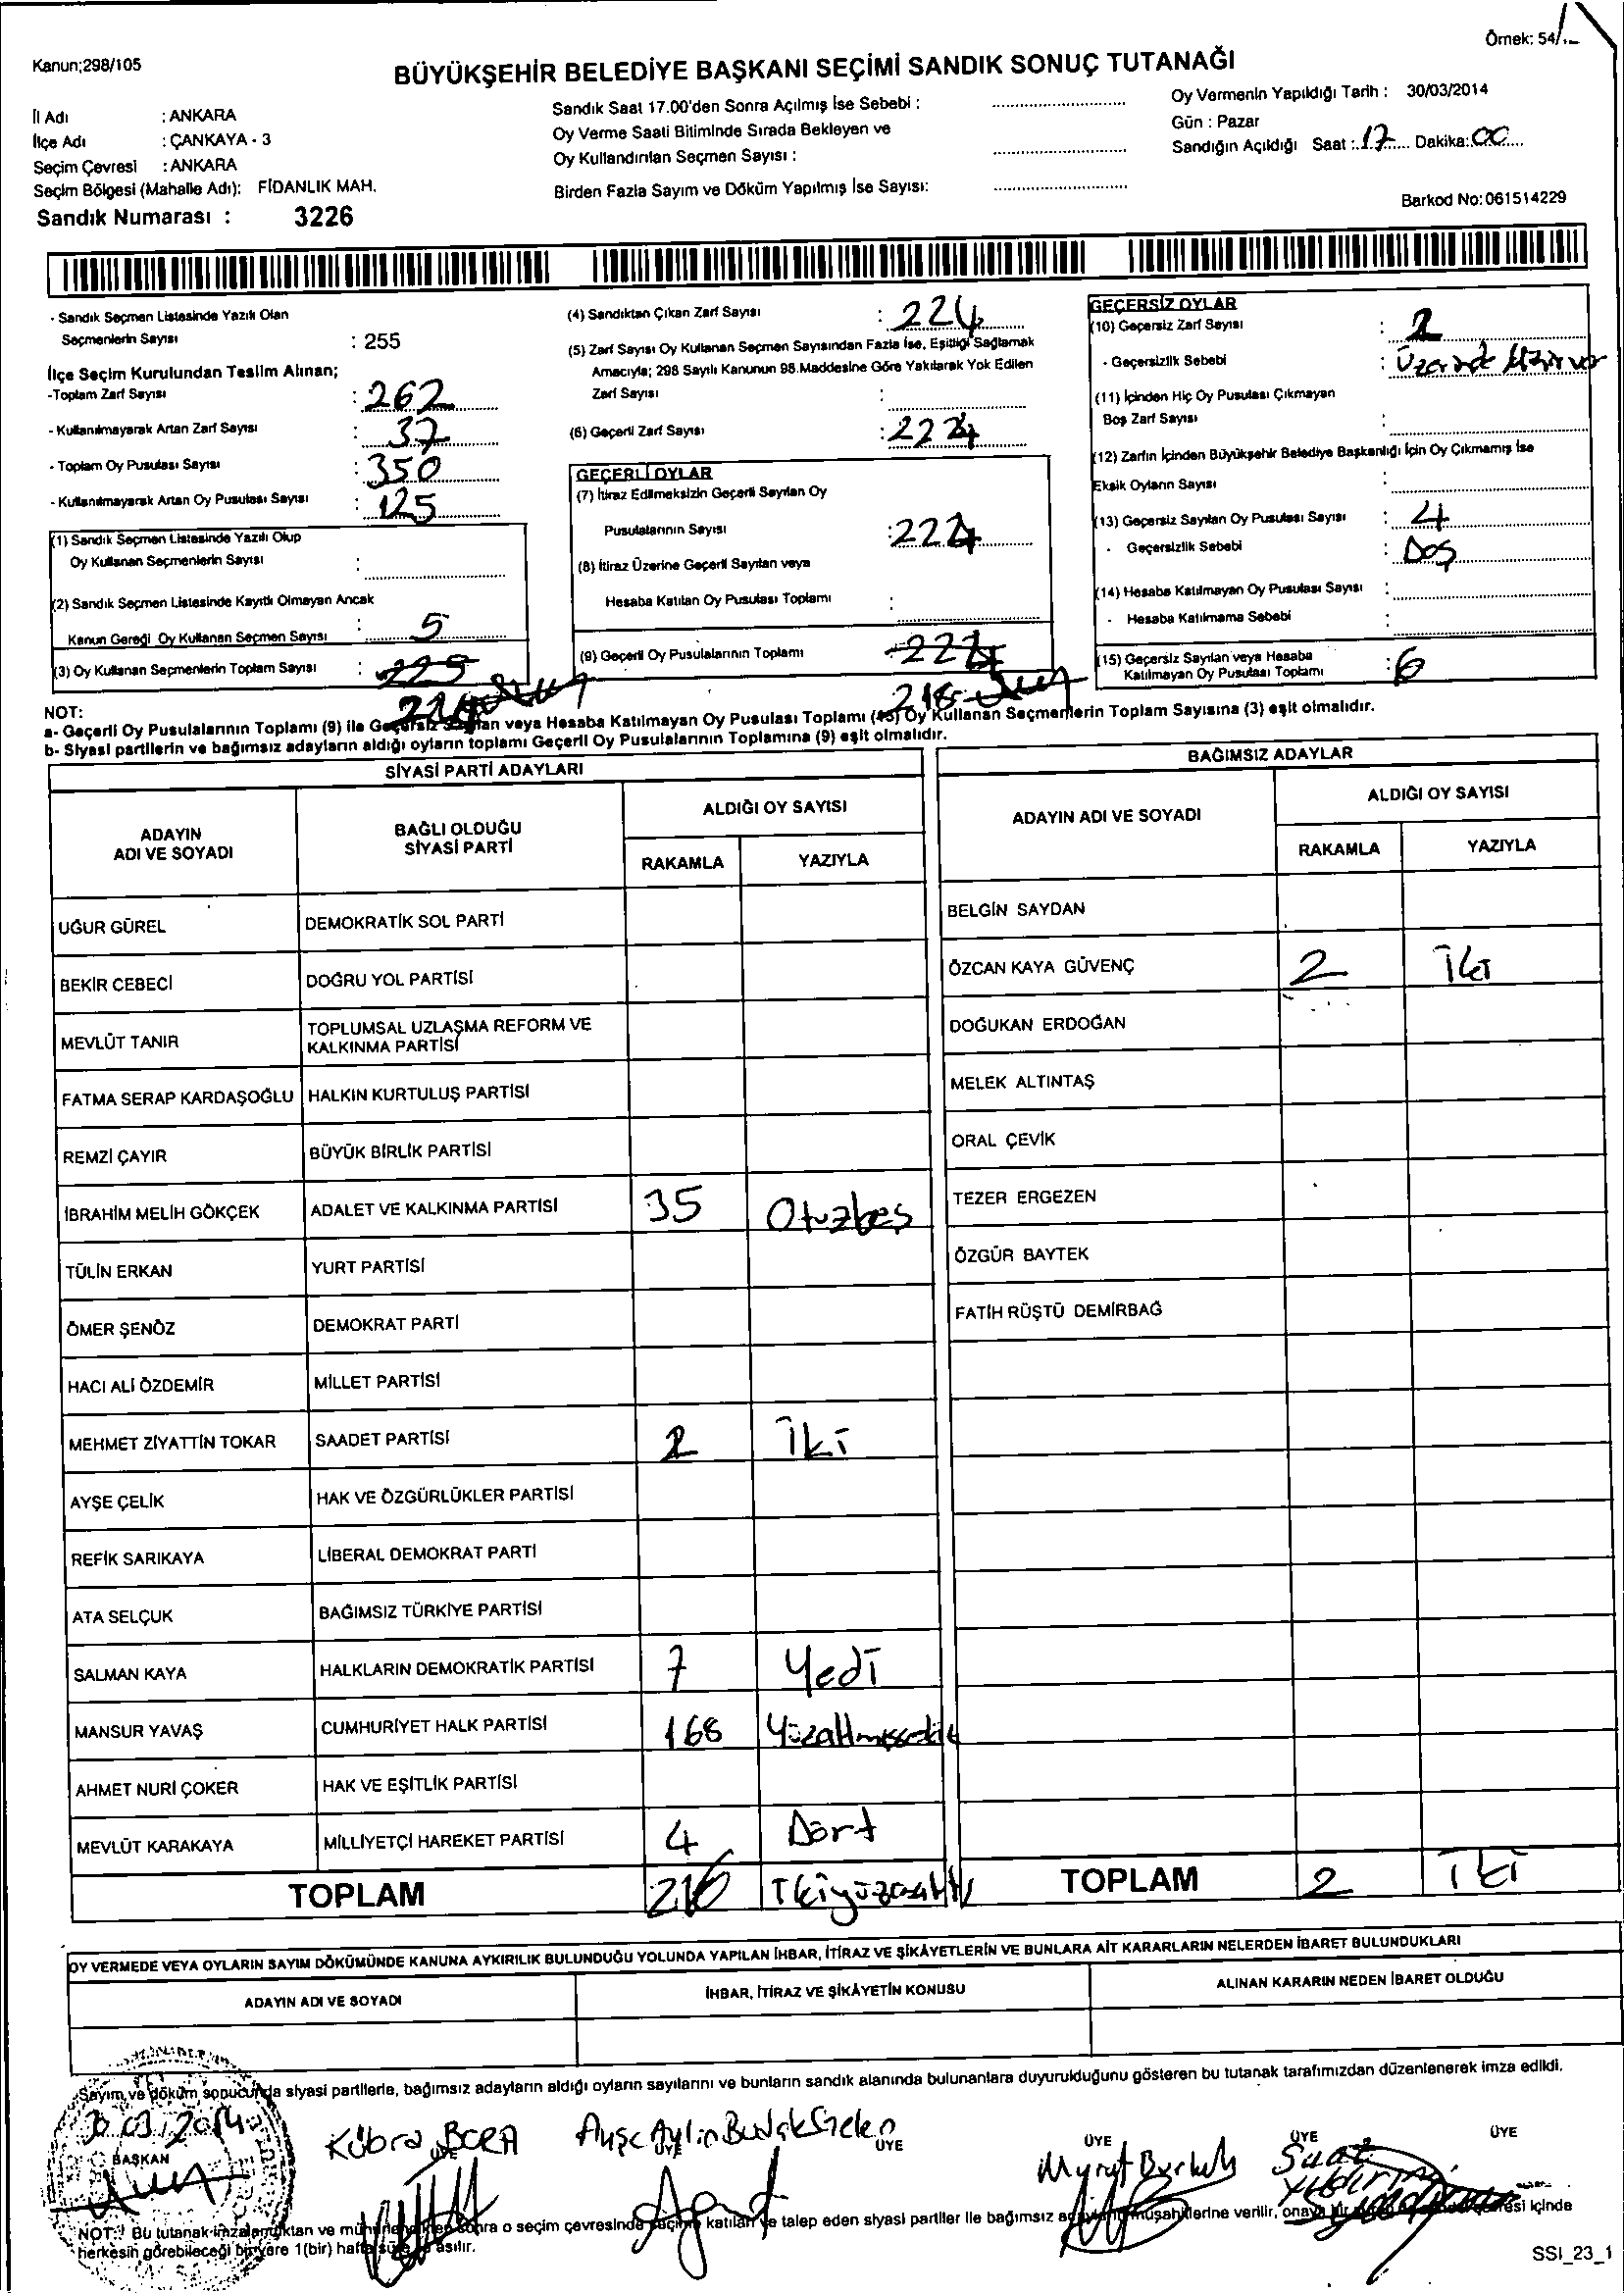 Örnek: 54/
Kanun;298/105
BÜYÜKŞEHİR BELEDİYE BAŞKANI SEÇİMİ SANDIK SONUÇ TUTANAĞI
İl Adı : ANKARA
İlçe Adı : ÇANKAYA - 3
Seçim Çevresi : ANKARA
Seçim Bölgesi (Mahalle Adı): FİDANLIK MAH.
Sandık Numarası : 3226
Sandık Saat 17.00'den Sonra Açılmış İse Sebebi :
Oy Verme Saati Bitiminde Sırada Bekleyen ve
Oy Kullandırılan Seçmen Sayısı :
Birden Fazla Sayım ve Döküm Yapılmış İse Sayısı:
Oy Vermenin Yapıldığı Tarih : 30/03/2014
Gün : Pazar
Sandığın Açıldığı Saat : 17 Dakika: 00
Barkod No: 061514229
- Sandık Seçmen Listesinde Yazılı Olan
Seçmenlerin Sayısı : 255
İlçe Seçim Kurulundan Teslim Alınan;
-Toplam Zarf Sayısı : 262
- Kullanılmayarak Artan Zarf Sayısı : 37
- Toplam Oy Pusulası Sayısı : 350
- Kullanılmayarak Artan Oy Pusulası Sayısı : 125
(1) Sandık Seçmen Listesinde Yazılı Olup
Oy Kullanan Seçmenlerin Sayısı :
(2) Sandık Seçmen Listesinde Kayıtlı Olmayan Ancak
Kanun Gereği Oy Kullanan Seçmen Sayısı : 5
(3) Oy Kullanan Seçmenlerin Toplam Sayısı : 225
224
(4) Sandıktan Çıkan Zarf Sayısı : 224
(5) Zarf Sayısı Oy Kullanan Seçmen Sayısından Fazla İse, Eşitliği Sağlamak
Amacıyla; 298 Sayılı Kanunun 98.Maddesine Göre Yakılarak Yok Edilen
Zarf Sayısı :
(6) Geçerli Zarf Sayısı : 224
GEÇERLİ OYLAR
(7) İtiraz Edilmeksizin Geçerli Sayılan Oy
Pusulalarının Sayısı : 224
(8) İtiraz Üzerine Geçerli Sayılan veya
Hesaba Katılan Oy Pusulası Toplamı :
(9) Geçerli Oy Pusulalarının Toplamı 224
218
GEÇERSİZ OYLAR
(10) Geçersiz Zarf Sayısı : 2
- Geçersizlik Sebebi : Üzerinde Mühür var
(11) İçinden Hiç Oy Pusulası Çıkmayan
Boş Zarf Sayısı :
(12) Zarfın İçinden Büyükşehir Belediye Başkanlığı İçin Oy Çıkmamış İse
Eksik Oyların Sayısı :
(13) Geçersiz Sayılan Oy Pusulası Sayısı : 4
- Geçersizlik Sebebi : Boş
(14) Hesaba Katılmayan Oy Pusulası Sayısı :
- Hesaba Katılmama Sebebi :
(15) Geçersiz Sayılan veya Hesaba
Katılmayan Oy Pusulası Toplamı : 6
NOT:
a- Geçerli Oy Pusulalarının Toplamı (9) ile Geçersiz Sayılan veya Hesaba Katılmayan Oy Pusulası Toplamı (15) Oy Kullanan Seçmenlerin Toplam Sayısına (3) eşit olmalıdır.
b- Siyasi partilerin ve bağımsız adayların aldığı oyların toplamı Geçerli Oy Pusulalarının Toplamına (9) eşit olmalıdır.
SİYASİ PARTİ ADAYLARI
ADAYIN ADI VE SOYADI BAĞLI OLDUĞU SİYASİ PARTİ ALDIĞI OY SAYISI
RAKAMLA YAZIYLA
UĞUR GÜREL DEMOKRATİK SOL PARTİ
BEKİR CEBECİ DOĞRU YOL PARTİSİ
MEVLÜT TANIR TOPLUMSAL UZLAŞMA REFORM VE KALKINMA PARTİSİ
FATMA SERAP KARDAŞOĞLU HALKIN KURTULUŞ PARTİSİ
REMZİ ÇAYIR BÜYÜK BİRLİK PARTİSİ
İBRAHİM MELİH GÖKÇEK ADALET VE KALKINMA PARTİSİ 35 Otuzbeş
TÜLİN ERKAN YURT PARTİSİ
ÖMER ŞENÖZ DEMOKRAT PARTİ
HACI ALİ ÖZDEMİR MİLLET PARTİSİ
MEHMET ZİYATTİN TOKAR SAADET PARTİSİ 2 İki
AYŞE ÇELİK HAK VE ÖZGÜRLÜKLER PARTİSİ
REFİK SARIKAYA LİBERAL DEMOKRAT PARTİ
ATA SELÇUK BAĞIMSIZ TÜRKİYE PARTİSİ
SALMAN KAYA HALKLARIN DEMOKRATİK PARTİSİ 7 Yedi
MANSUR YAVAŞ CUMHURİYET HALK PARTİSİ 168 Yüzaltmışsekiz
AHMET NURİ ÇOKER HAK VE EŞİTLİK PARTİSİ
MEVLÜT KARAKAYA MİLLİYETÇİ HAREKET PARTİSİ 4 Dört
TOPLAM 216 İkiyüzonaltı
BAĞIMSIZ ADAYLAR
ADAYIN ADI VE SOYADI ALDIĞI OY SAYISI
RAKAMLA YAZIYLA
BELGİN SAYDAN
ÖZCAN KAYA GÜVENÇ 2 İki
DOĞUKAN ERDOĞAN
MELEK ALTINTAŞ
ORAL ÇEVİK
TEZER ERGEZEN
ÖZGÜR BAYTEK
FATİH RÜŞTÜ DEMİRBAĞ
TOPLAM 2 İki
OY VERMEDE VEYA OYLARIN SAYIM DÖKÜMÜNDE KANUNA AYKIRILIK BULUNDUĞU YOLUNDA YAPILAN İHBAR, İTİRAZ VE ŞİKÂYETLERİN VE BUNLARA AİT KARARLARIN NELERDEN İBARET BULUNDUKLARI
ADAYIN ADI VE SOYADI İHBAR, İTİRAZ VE ŞİKÂYETİN KONUSU ALINAN KARARIN NEDEN İBARET OLDUĞU
Sayım ve döküm sonucunda siyasi partilerle, bağımsız adayların aldığı oyların sayılarını ve bunların sandık alanında bulunanlara duyurulduğunu gösteren bu tutanak tarafımızdan düzenlenerek imza edildi.
30.03.2014
BAŞKAN
Kübra BORA
ÜYE
Ayşe Aylin
ÜYE
ÜYE
Murat
ÜYE
Suat Yıldırım
ÜYE
NOT: Bu tutanak imzalandıktan ve mühürlendikten sonra o seçim çevresinde seçime katılan ve talep eden siyasi partiler ile bağımsız müşahitlerine verilir, içinde
herkesin görebileceği bir yere 1(bir) hafta süre ile asılır.
SSI_23_1